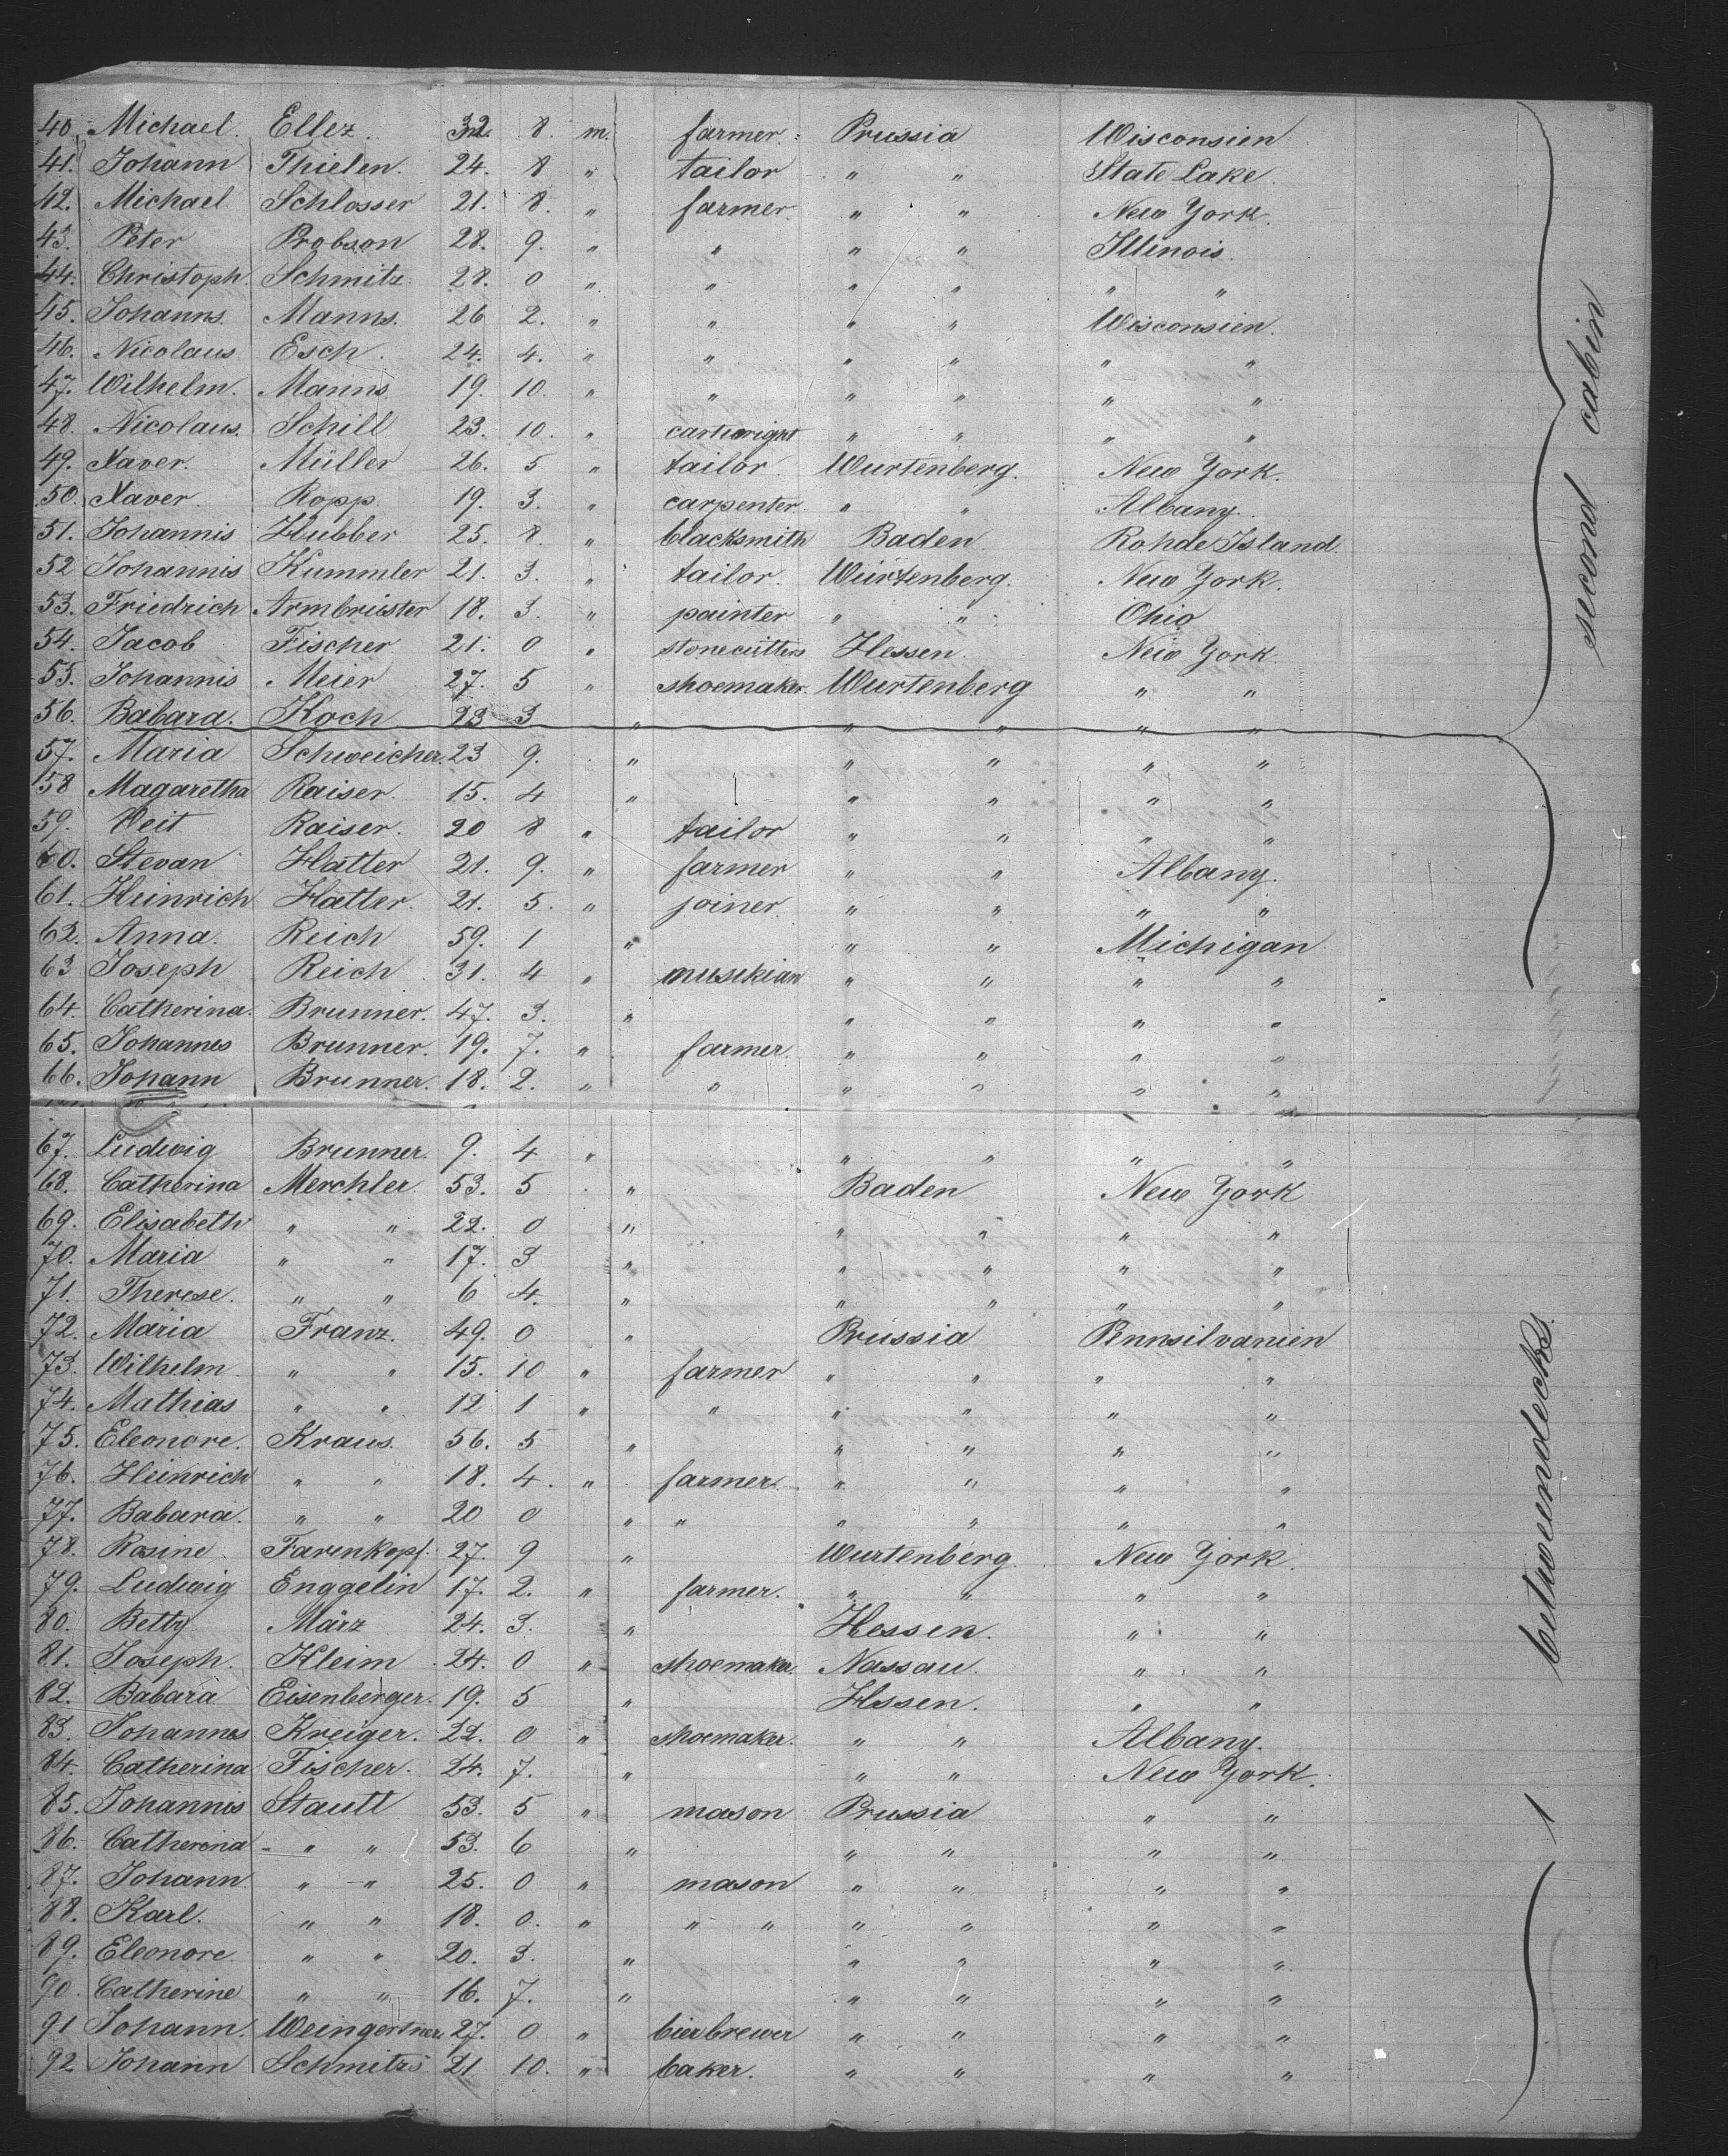 40. Michael. Ellez. 32. 8. m. farmer. Prussia Wisconsien
41. Johann Thielen. 24. 8 " tailor " " State Lake.
42. Michael Schlosser 21. 8. " farmer. " " New York.
43. Peter Probson 28. 9. " " " " Illinois.
44. Christoph. Schmitz 28. 0 " " " " " "
45. Johanns. Manns. 26 2. " " " " Wisconsien.
46. Nicolaus Esch. 24. 4. " " " " " "
47. Wilhelm. Manns. 19. 10. " " " " " "
48. Nicolaus. Schill 23. 10. " cartwright " " " "
49. Xaver. Müller 26. 5 " tailor. Wurtenberg. New York.
50. Xaver. Ropp. 19. 3. " carpenter " " Albany.
51. Johannis Hubber 25. 8. " blacksmith Baden Rohde Island.
52 Johannis Kummler 21. 3. " tailor. Würtenberg. New York.
53. Friedrich Armbrüster 18. 3. " painter " " Ohio
54. Jacob Fischer 21. 0 " stonecutters Hessen. New York.
55. Johannis Meier 27. 5 " shoemaker. Wurtenberg " "
56. Babara. Koch 23 3. " " " " "
57. Maria Schweicher. 23 9. " " " " "
58 Magaretha Raiser. 15. 4 " " " " "
59. Veit Raiser. 20 8 " tailor " " " "
60. Stevan Hatter 21. 9. " farmer " " Albany.
61. Heinrich Hatter. 21. 5. " joiner. " " " "
62. Anna. Reich 59. 1 " " " Michigan
63 Joseph Reich 31. 4 " musikian " " " "
64. Catherina. Brunner. 47. 3. " " " " "
65. Johannes Brunner. 19. 7. " farmer. " " " "
66. Johann Brunner. 18. 2. " " " " " "
67. Ludwig Brunner. 9. 4 " " " " "
68. Catherina Merchler. 53. 5 " Baden New York
69. Elisabeth " " 22. 0 " " " " "
70. Maria " " 17. 3 " " " " "
71. Therese. " " 6 4. " " " " "
72. Maria Franz. 49. 0 " Prussia Pennsilvanien
73. Wilhelm " " 15. 10 " farmer " " " "
74. Mathias " " 12 1 " " " " " "
75. Eleonore. Kraus. 56. 5 " " " " "
76. Heinrich " " 18. 4. " farmer. " " " "
77. Babara. " " 20 0 " " " " " "
78. Rosine. Farenkopf. 27. 9 " Wurtenberg. New York.
79. Ludwig Enggelin 17. 2. " farmer. " " " "
80. Betty März 24. 3. " Hessen. " "
81. Joseph. Kleim 24. 0 " shoemaker. Nassau. " "
82. Babara Eisenberger. 19. 5 " Hssen. " "
83. Johannes Kreiger. 22. 0 " shoemaker. " " Albany.
84. Catherina Fischer. 24. 7. " " " New York.
85. Johannis Stautt 53. 5 " mason Prussia " "
86. Catherina " " 53. 6 " " " " "
87. Johann " " 25. 0 " mason " " " "
88. Karl. " " 18. 0. " " " " " " "
89. Eleonore. " " 20. 3. " " " " "
90. Catherine " " 16. 7. " " " " "
91 Johann. Weingertner 27. 0 " bierbrewer " " " "
92 Johann Schmitzs 21 10. " baker. " " " "
second cabin
betweendecks.